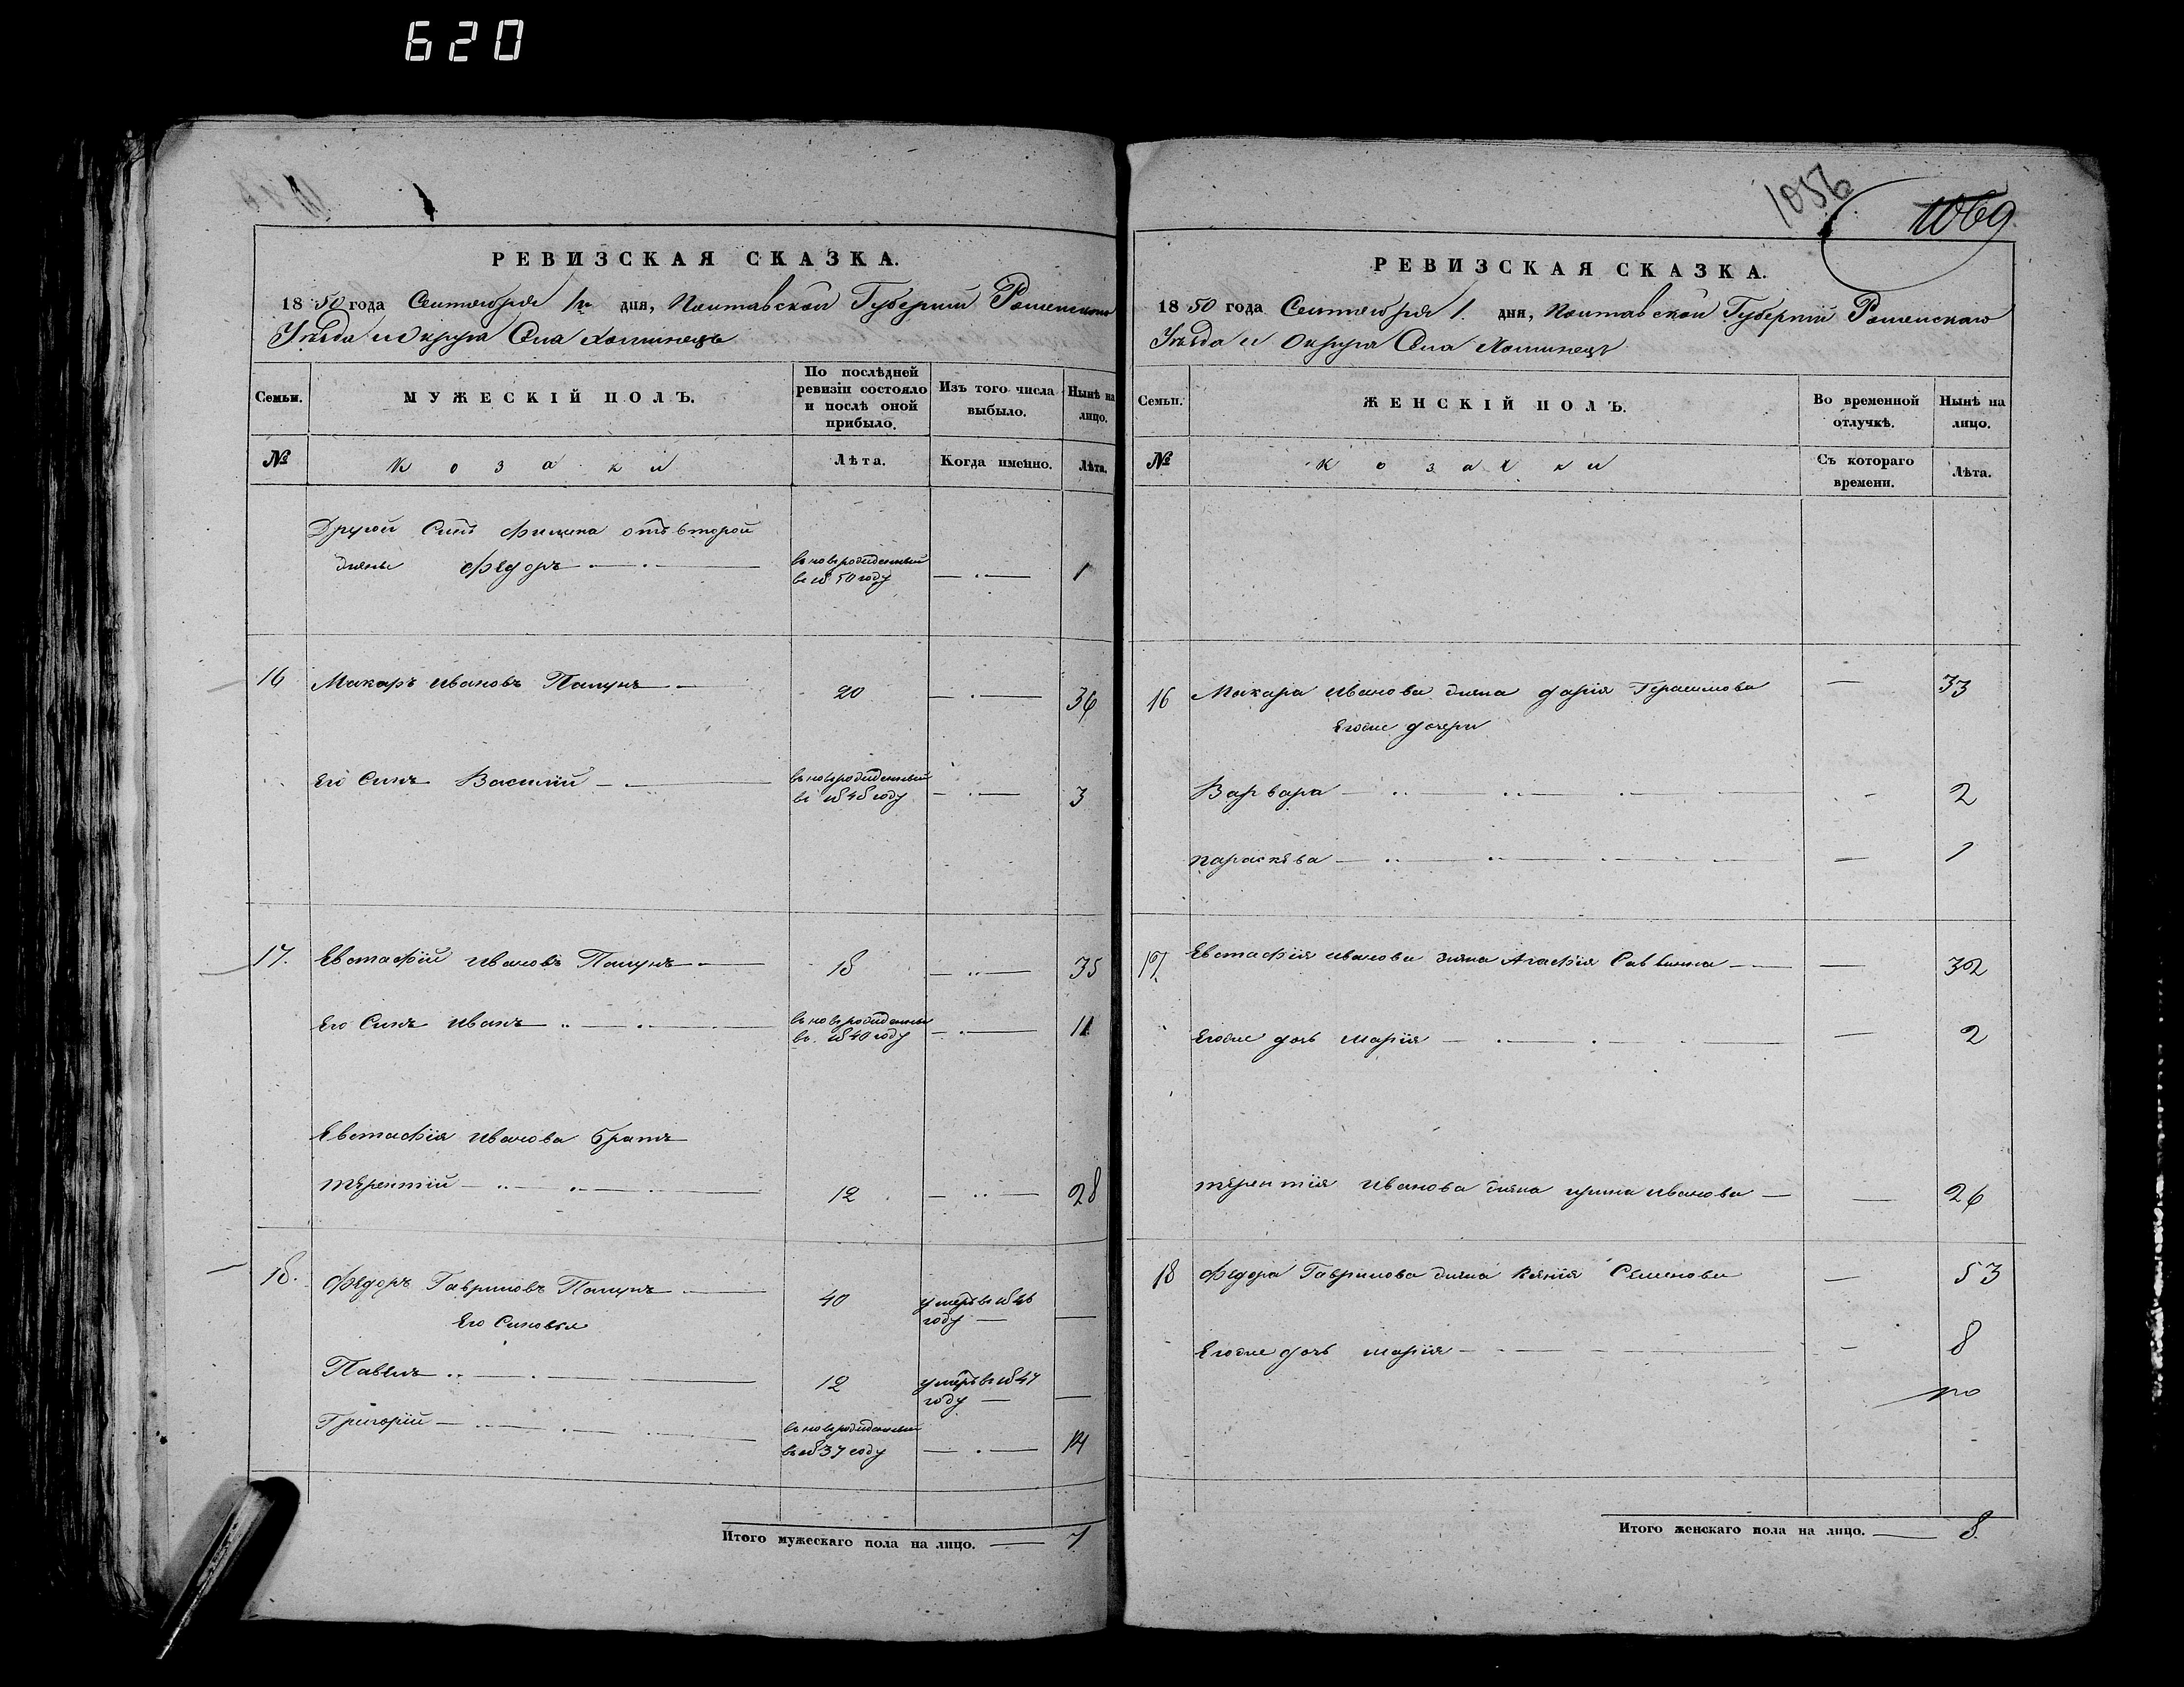 620
РЕВИЗСКАЯ СКАЗКА.
1850 года Сентября 1го дня, Полтавской Губернии Роменскаго
Уезда и Округа Села Хоминецъ
Семьи.
МУЖЕСКІЙ ПОЛЪ.
По послѣдней ревизіи состояло и послѣ оной прибыло.
Изъ того числа выбыло.
Нынѣ на лицо.
№
козаки
Лѣта.
Когда именно.
Лѣта.
Другой Синъ отъ второй
жены Федоръ вновърожденный 1
въ 1850 году
16 Макаръ Ивановъ 20 36
Его Синъ Василий вновърожденный 3
въ 1848 году
17. Евстафий Ивановъ 18 35
Его Синъ Иванъ вновърожденный 11
въ 1840 году
Евстафия Иванова братъ
терентий 12 28
18. Федоръ Гавриловъ 40 умеръ въ 1846 году —
Его Синовья
Павелъ 12 умеръ въ 1847 году —
Григорий вновърожденный 14
въ 1837 году
Итого мужескаго пола на лицо. 7
1056
1069
РЕВИЗСКАЯ СКАЗКА.
1850 года Сентября 1. дня, Полтавской Губерний Роменскаго
Уезда и Округа Села Хоминецъ
Семьи.
ЖЕНСКІЙ ПОЛЪ.
Во временной отлучкѣ.
Нынѣ на лицо.
№
козачки
Съ котораго времени.
Лѣта.
16 Макара Иванова жена дария Герасимова — 33
Егоже дочери
Варвара — 2
параскева — 1
17 Евстафия Иванова жена Агафия Саввина — 32
Егоже дочь мария — 2
терентия Иванова жена ирина Иванова — 26
18 Федора Гаврилова жена Ксения Семенова — 53
Егоже дочь мария — 8
Итого женскаго пола на лицо. 8